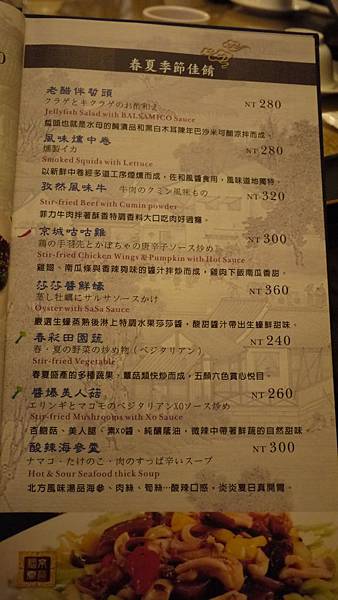 春夏季節佳餚
老醋伴蜇頭
クラゲとキクラゲのお酢和え NT 280
Jellyfish Salad with BALSAMICO Sauce
蜇頭也就是水母的醃漬品和黑白木耳陳年巴沙米可醋涼拌而成。
風味燻中卷 NT 280
燻製イカ
Smoked Squids with Lettuce
以新鮮中卷經多道工序煙燻而成，佐和風醬食用，風味道地獨特。
孜然風味牛 牛肉のクミン風味もの NT 320
Stir-fried Beef with Cumin powder
菲力牛肉拌著酥香特調香料大口吃肉好過癮。
京城咕咕雞 NT 300
鶏の手羽先とかぼちゃの唐辛子ソース炒め
Stir-fried Chicken Wings & Pumpkin with Hot Sauce
雞翅、南瓜條與香辣夠味的醬汁拌炒而成，雞肉下飯南瓜香甜。
莎莎醬鮮蠔 NT 360
蒸し牡蠣にサルサソースかけ
Oyster with SaSa Sauce
嚴選生蠔蒸熟後淋上特調水果莎莎醬，酸甜醬汁帶出生蠔鮮甜味。
香彩田園蔬 NT 240
春・夏の野菜の炒め物（ベジタリアン）
Stir-fried Vegetable
春夏盛產的多種蔬果、蕈菇類快炒而成，五顏六色賞心悅目。
醬爆美人菇 NT 260
エリンギとマコモのベジタリアンXOソース炒め
Stir-fried Mushrooms with Xo Sauce
杏鮑菇、美人腿、素XO醬、純釀蔭油，微辣中帶著鮮蔬的自然甜味。
酸辣海參羹 NT 300
ナマコ・たけのこ・肉のすっぱ辛いスープ
Hot & Sour Seafood thick Soup
北方風味湯品海參、肉絲、筍絲…酸辣口感，炎炎夏日真開胃。